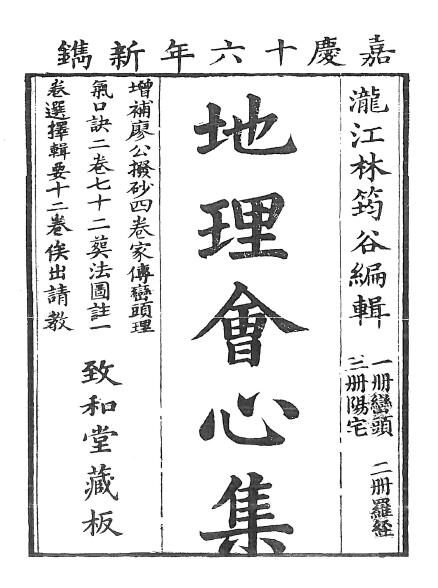 嘉慶十六年新鐫
瀧江林筠谷編輯
一册巒頭
二册羅経
三册陽宅
地理會心集
增補廖公撥砂四卷家傳巒頭理
氣口訣二卷七十二葬法圖註一
卷選擇輯要十二卷俟出請教
致和堂藏板